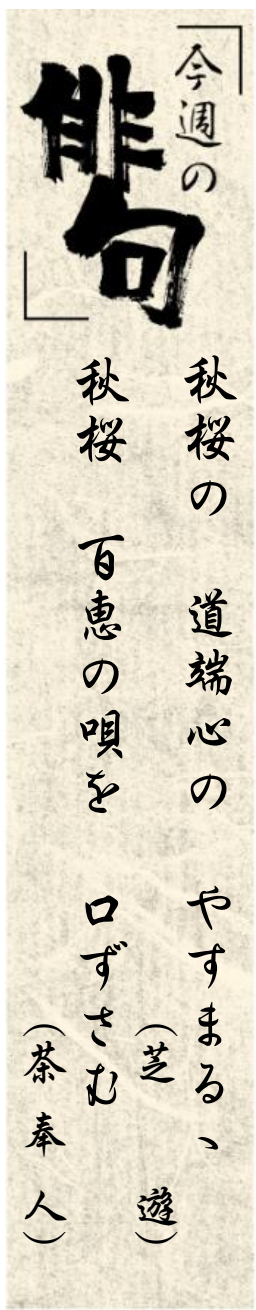 今週の
俳句
秋桜の　道端心の　やすまるヽ
（芝　遊）
秋桜　百恵の唄を　口ずさむ
（茶奉人）